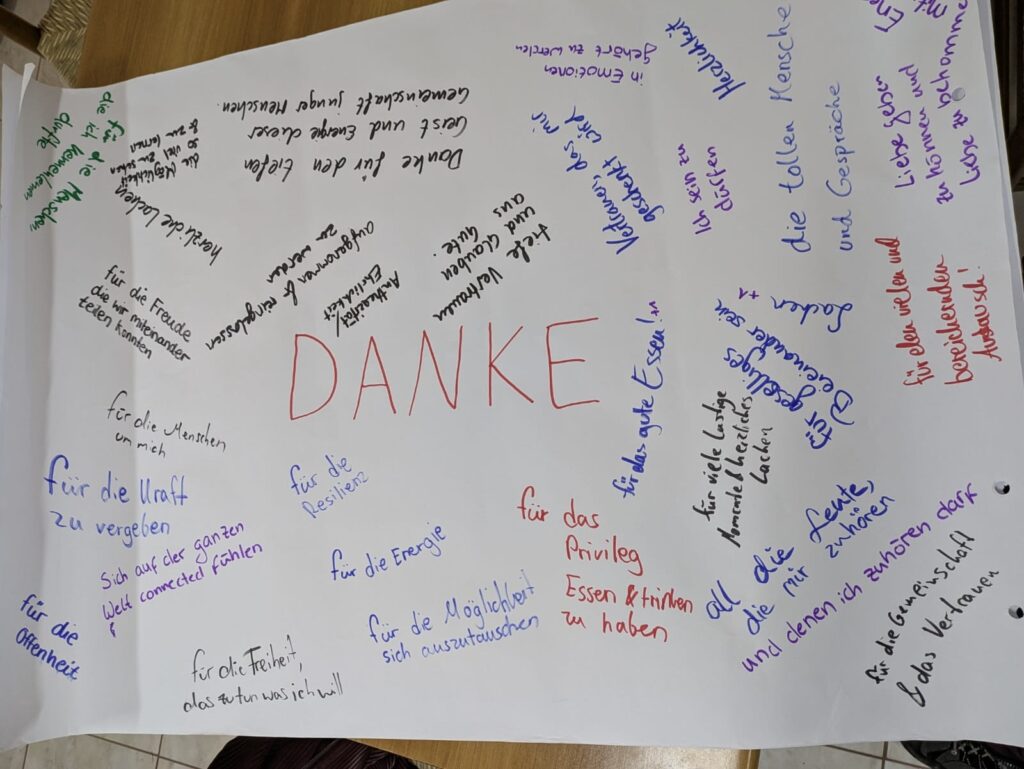 DANKE
für die Menschen
die ich kennenlernen
durfte
die Möglichkeit
so viel zu sehen
& zu lernen
herzliche Lachen
Danke für den tiefen
Geist und Energie dieser
Gemeinschaft junger Menschen.
in Emotionen
gehört zu werden
Herzlichkeit
Vertrauen, das mir
geschenkt wird
Ich sein zu
dürfen
die tollen Mensche
und Gespräche
Liebe geben
zu können und
Liebe zu bekommen
für den vielen und
bereichernden
Austausch!
tiefe Vertrauen
und Glauben
ans
Gute.
Authentizität/
Ehrlichkeit
aufgenommen & reingelassen
zu werden
für die Freude
die wir miteinander
teilen konnten
für das gute Essen! +1
Lachen +1
für geselliges
Beieinander sein
für viele lustige
Momente & herzliches
Lachen
für die Menschen
um mich
für die Kraft
zu vergeben
für die
Resilienz
Sich auf der ganzen
Welt connected fühlen
für die Energie
für das
Privileg
Essen & trinken
zu haben
all die Leute,
die mir zuhören
und denen ich zuhören darf
für die Gemeinschaft
& das Vertrauen
für die
Offenheit
für die Freiheit,
das zu tun was ich will
für die Möglichkeit
sich auszutauschen